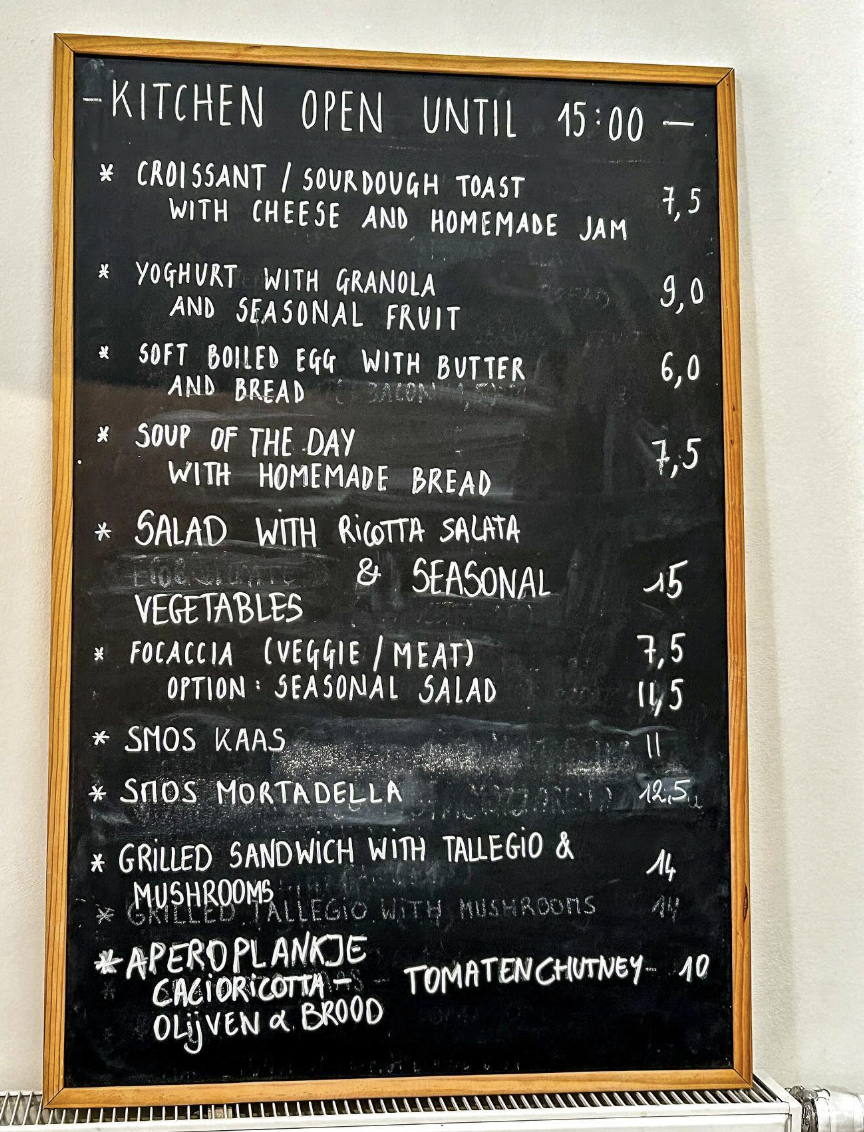 -KITCHEN OPEN UNTIL 15:00 —
* CROISSANT / SOURDOUGH TOAST
WITH CHEESE AND HOMEMADE JAM 7,5
* YOGHURT WITH GRANOLA 9,0
AND SEASONAL FRUIT
* SOFT BOILED EGG WITH BUTTER 6,0
AND BREAD (+ BACON 1,5)
* SOUP OF THE DAY 7,5
WITH HOMEMADE BREAD
* SALAD WITH RICOTTA SALATA
& SEASONAL 15
VEGETABLES
* FOCACCIA (VEGGIE / MEAT) 7,5
OPTION: SEASONAL SALAD 11,5
* SMOS KAAS 11
* SMOS MORTADELLA 12,5
* GRILLED SANDWICH WITH TALLEGIO & 14
MUSHROOMS
* GRILLED TALLEGIO WITH MUSHROOMS 14
*APEROPLANKJE
CACIORICOTTA – TOMATENCHUTNEY 10
OLIJVEN & BROOD